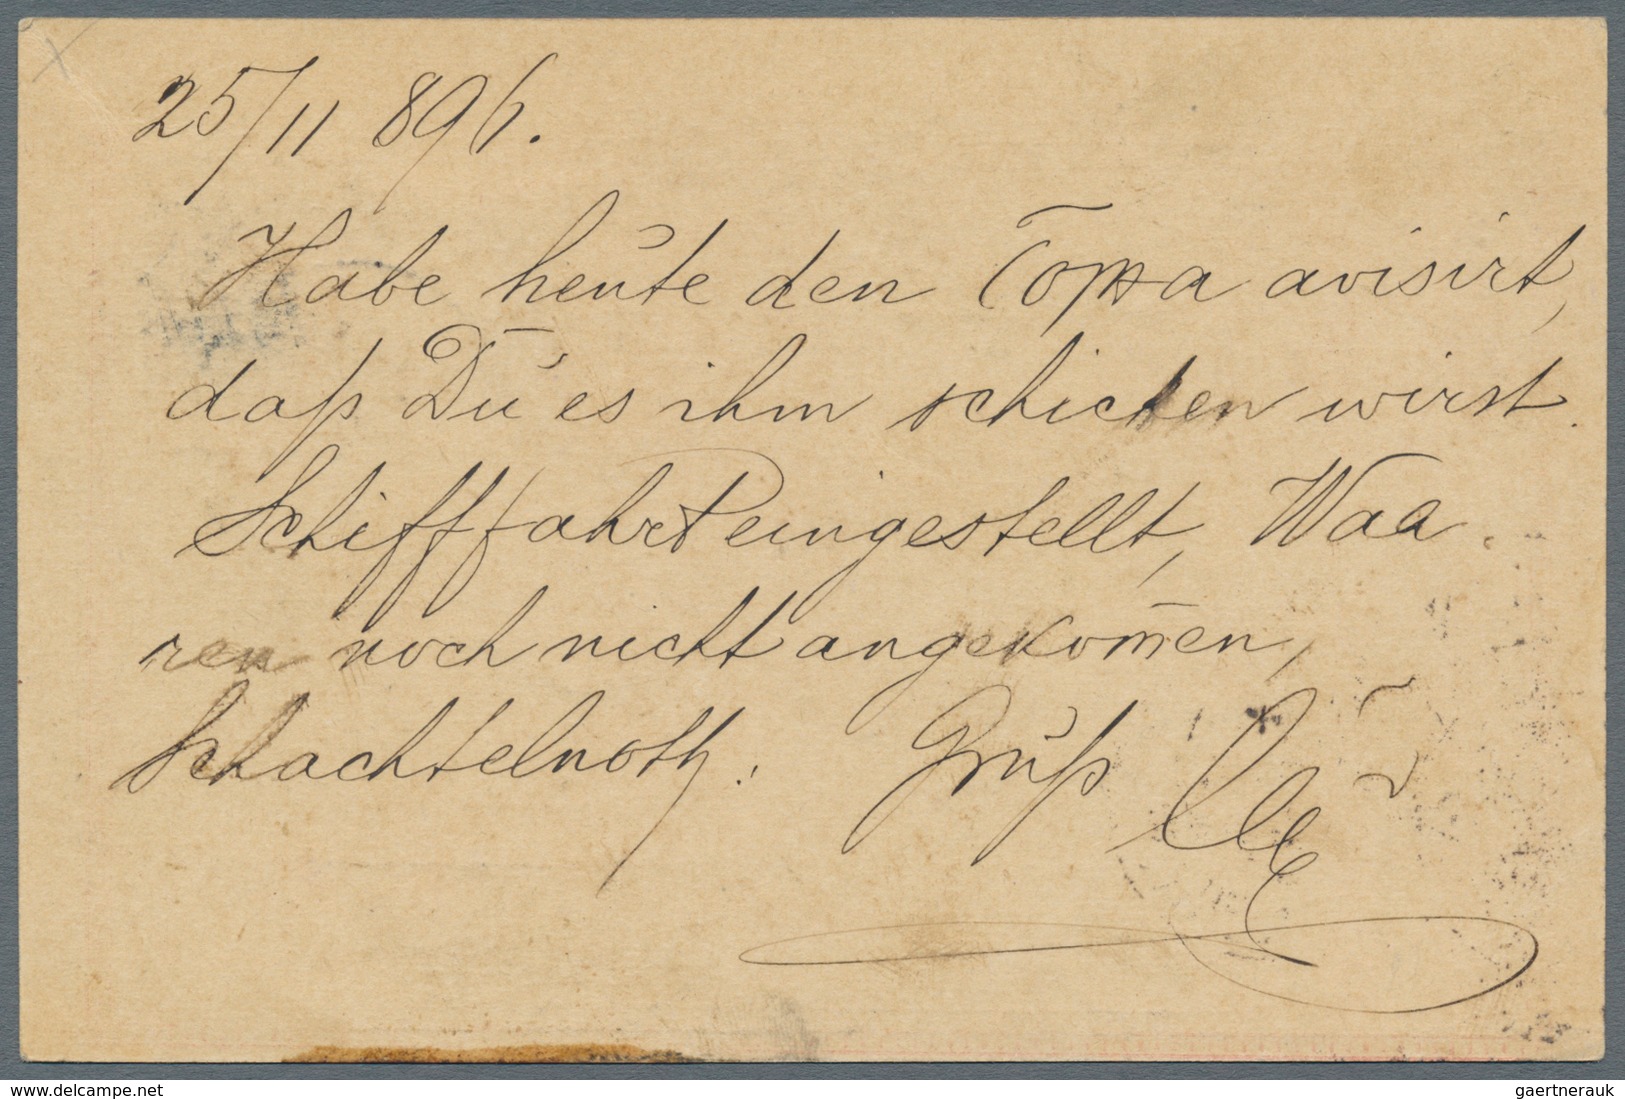 25/11 896.
Habe heute den avisirt,
daß Du es ihm schicken wirst.
Schifffahrt eingestellt, Waa
ren noch nicht angekom̄en,
Schachtelnoth. Gruß
www.delcampe.net
gaertnerauk